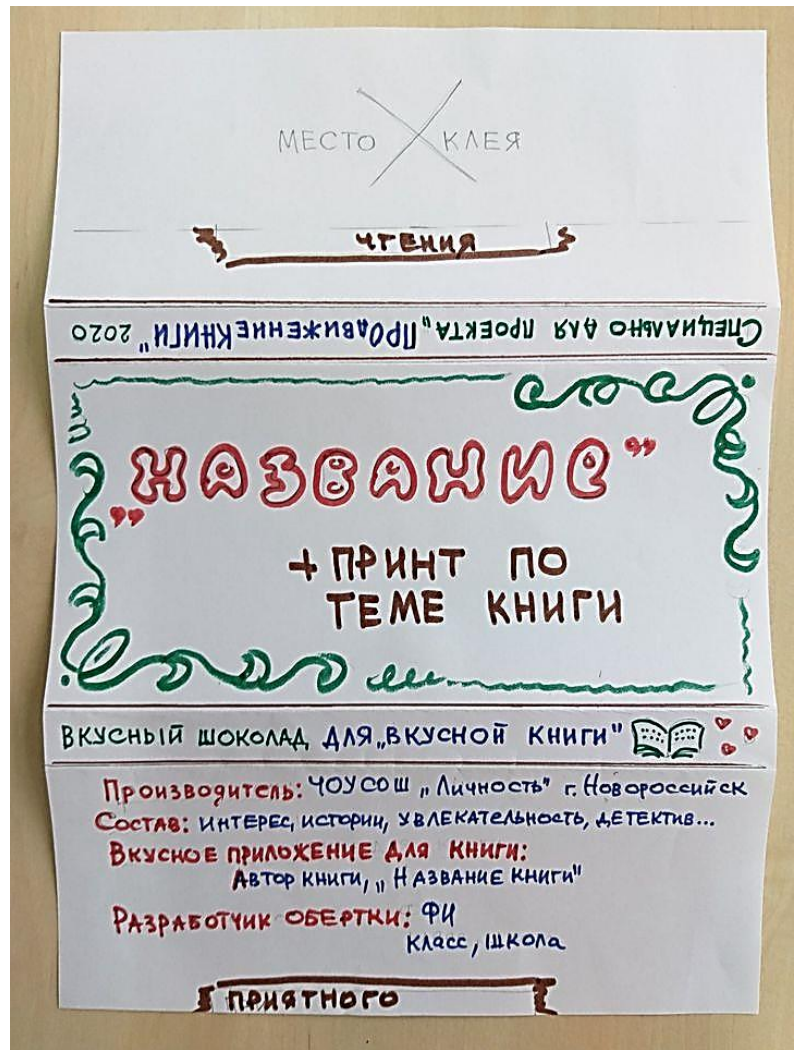 МЕСТО КЛЕЯ
ЧТЕНИЯ
СПЕЦИАЛЬНО ДЛЯ ПРОЕКТА „ПРОДВИЖЕНИЕКНИГИ" 2020
„НАЗВАНИЕ"
+ ПРИНТ ПО
ТЕМЕ КНИГИ
ВКУСНЫЙ ШОКОЛАД ДЛЯ „ВКУСНОЙ КНИГИ"
Производитель: ЧОУСОШ „Личность" г. Новороссийск
Состав: ИНТЕРЕС, ИСТОРИИ, УВЛЕКАТЕЛЬНОСТЬ, ДЕТЕКТИВ...
ВКУСНОЕ ПРИЛОЖЕНИЕ ДЛЯ КНИГИ:
АВТОР КНИГИ, „НАЗВАНИЕ КНИГИ"
РАЗРАБОТЧИК ОБЕРТКИ: ФИ
КЛАСС, ШКОЛА
ПРИЯТНОГО